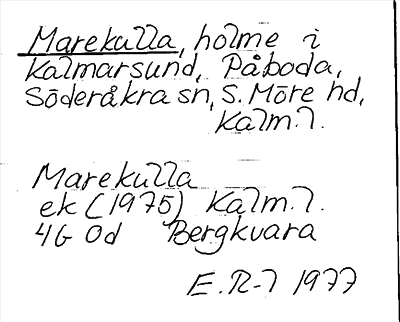 Marekulla, holme i
Kalmarsund, Påboda,
Söderåkra sn, S. Möre hd,
Kalm. l.
Marekulla
ek (1975) Kalm. l.
4G 0d Bergkvara
E. R-l 1977